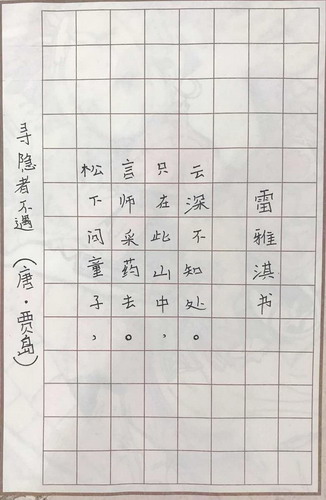 寻隐者不遇（唐·贾岛）
松下问童子，
言师采药去。
只在此山中，
云深不知处。
雷雅淇书